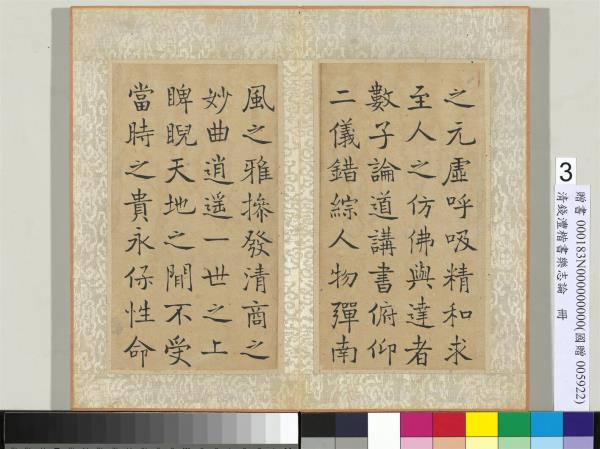 之元虛呼吸精和求
至人之仿佛與達者
數子論道講書俯仰
二儀錯綜人物彈南
風之雅摻發清商之
妙曲逍遙一世之上
睥睨天地之閒不受
當時之貴永保性命
3
贈書 000183N000000000(國贈 005922)
清錢灃楷書樂志論 冊